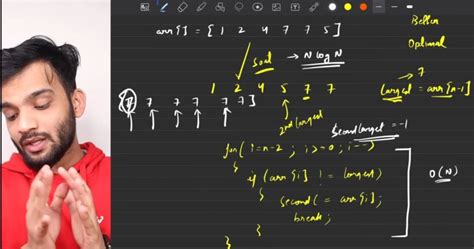 arr[] = [ 1 2 4 7 7 5 ]
Better
Optimal
Sort → N log N
1 2 4 5 7 7
largest = arr[n-1]
7
7 7 7 7 7 7]
2nd largest
Second largest = -1
for( i=n-2 ; i>=0 ; i--)
{
if (arr[i] != largest)
{
second l = arr[i];
break;
}
}
O(N)